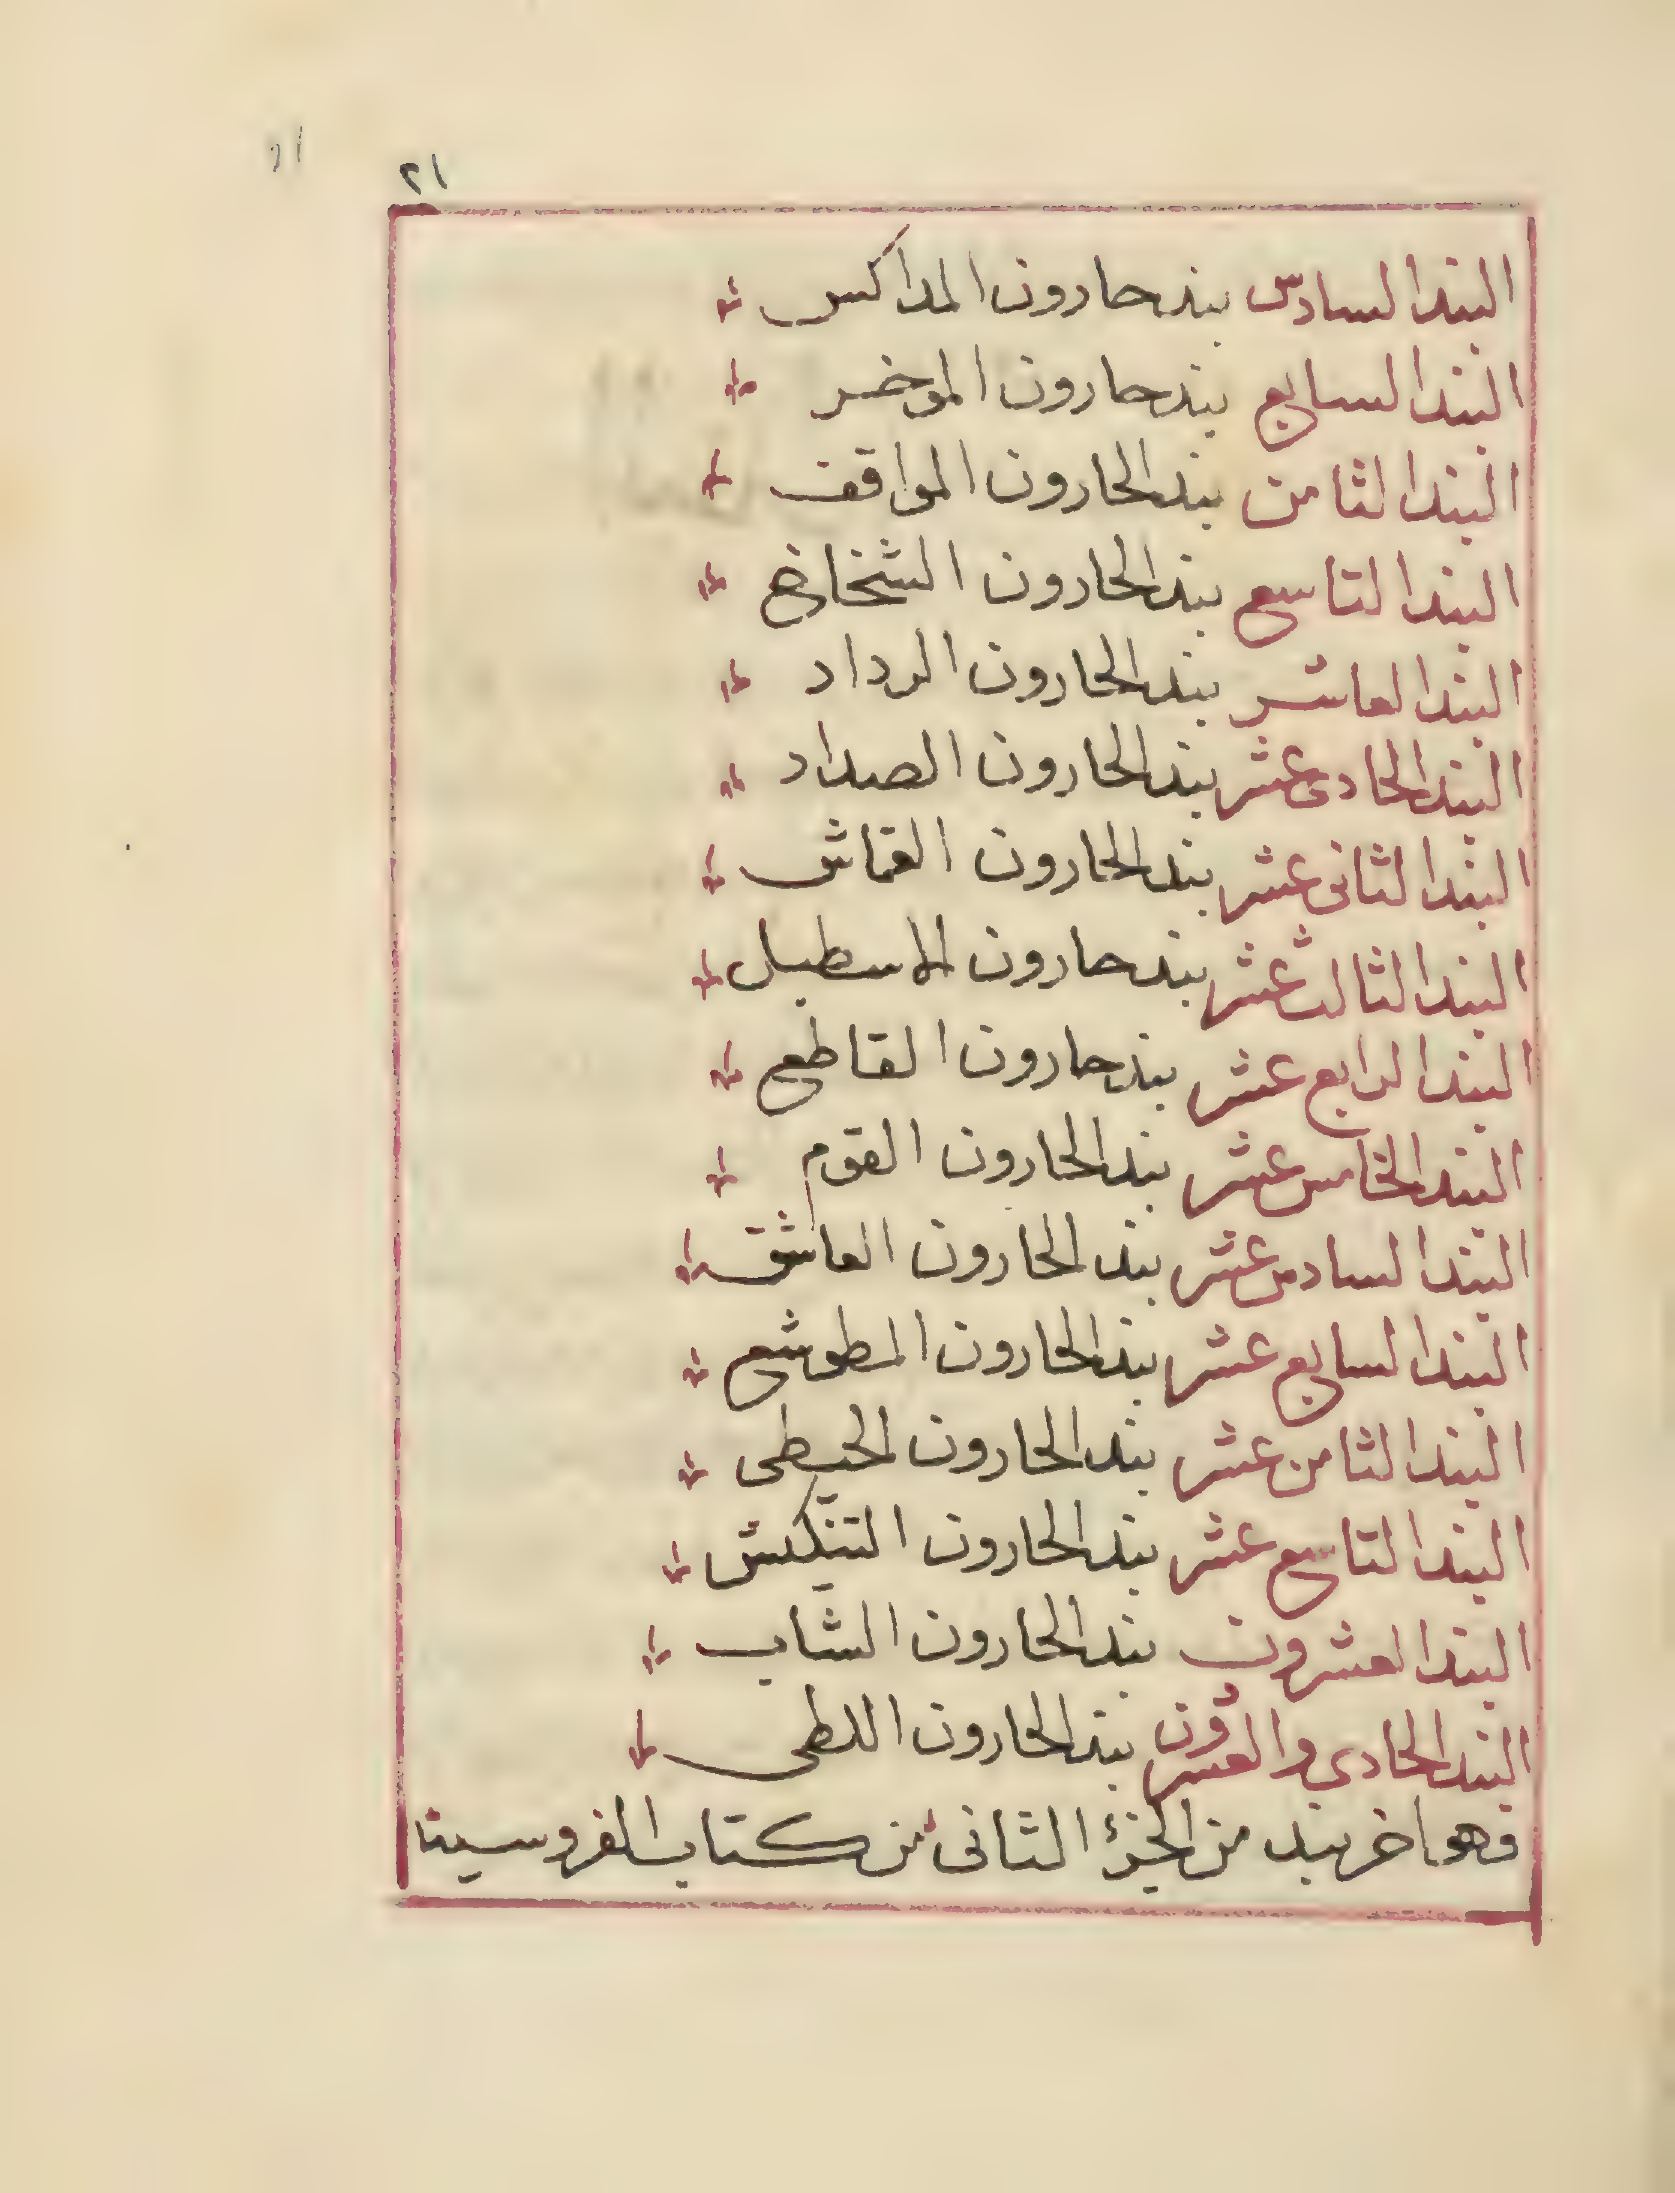 ٢١
٢١
البند السادس بند حارون المداكس
البند السابع بند حارون الموخر
البند الثامن بند الحارون المواقف
البند التاسع بند الحارون الشخاخ
البند العاشر بند الحارون الرداد
البند الحادى عشر بند الحارون الصداد
البند الثانى عشر بند الحارون القماش
البند الثالث عشر بند حارون الاسطبل
البند الرابع عشر بند حارون القاطع
البند الخامس عشر بند الحارون القوم
البند السادس عشر بند الحارون العاشق
البند السابع عشر بند الحارون المطوشع
البند الثامن عشر بند الحارون الحيطى
البند التاسع عشر بند الحارون
البند العشرون بند الحارون الشاب
البند الحادي والعشرون بند الحارون اللطى
وهو اخر بند من الجزء الثانى من كتاب الفروسية